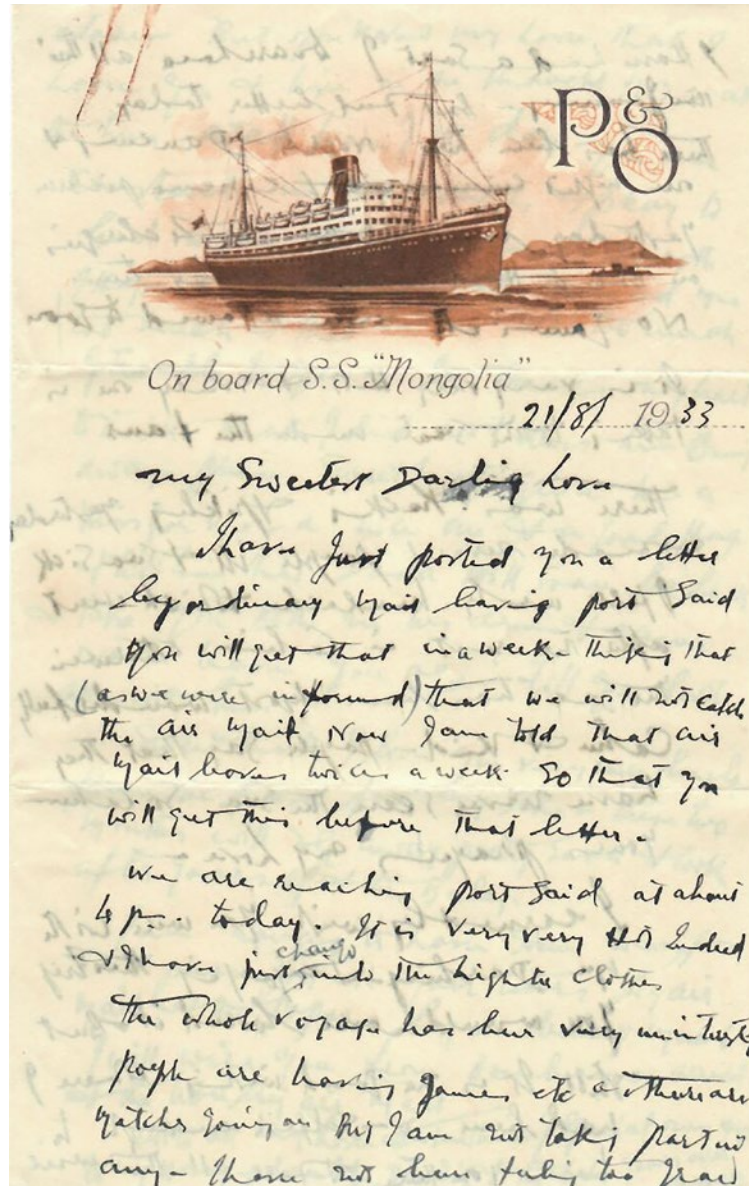 P&O
On board S.S. "Mongolia"
21/8/ 1933
My Sweetest Darling Love
I have Just posted you a letter
by ordinary Mail leaving port Said
you will get that in a week - thinking that
(as we were informed) that we will not catch
the air Mail Now I am told that air
Mail leaves twice a week. So that you
will get this before that letter.
we are reaching port Said at about
4 p.m. today. It is very very Hot Indeed
& I have just change into the lighter clothes
the whole voyage has been very uninteresting
people are having games etc & there are
Matches going on But I am not taking part in
any - I have not been feeling too